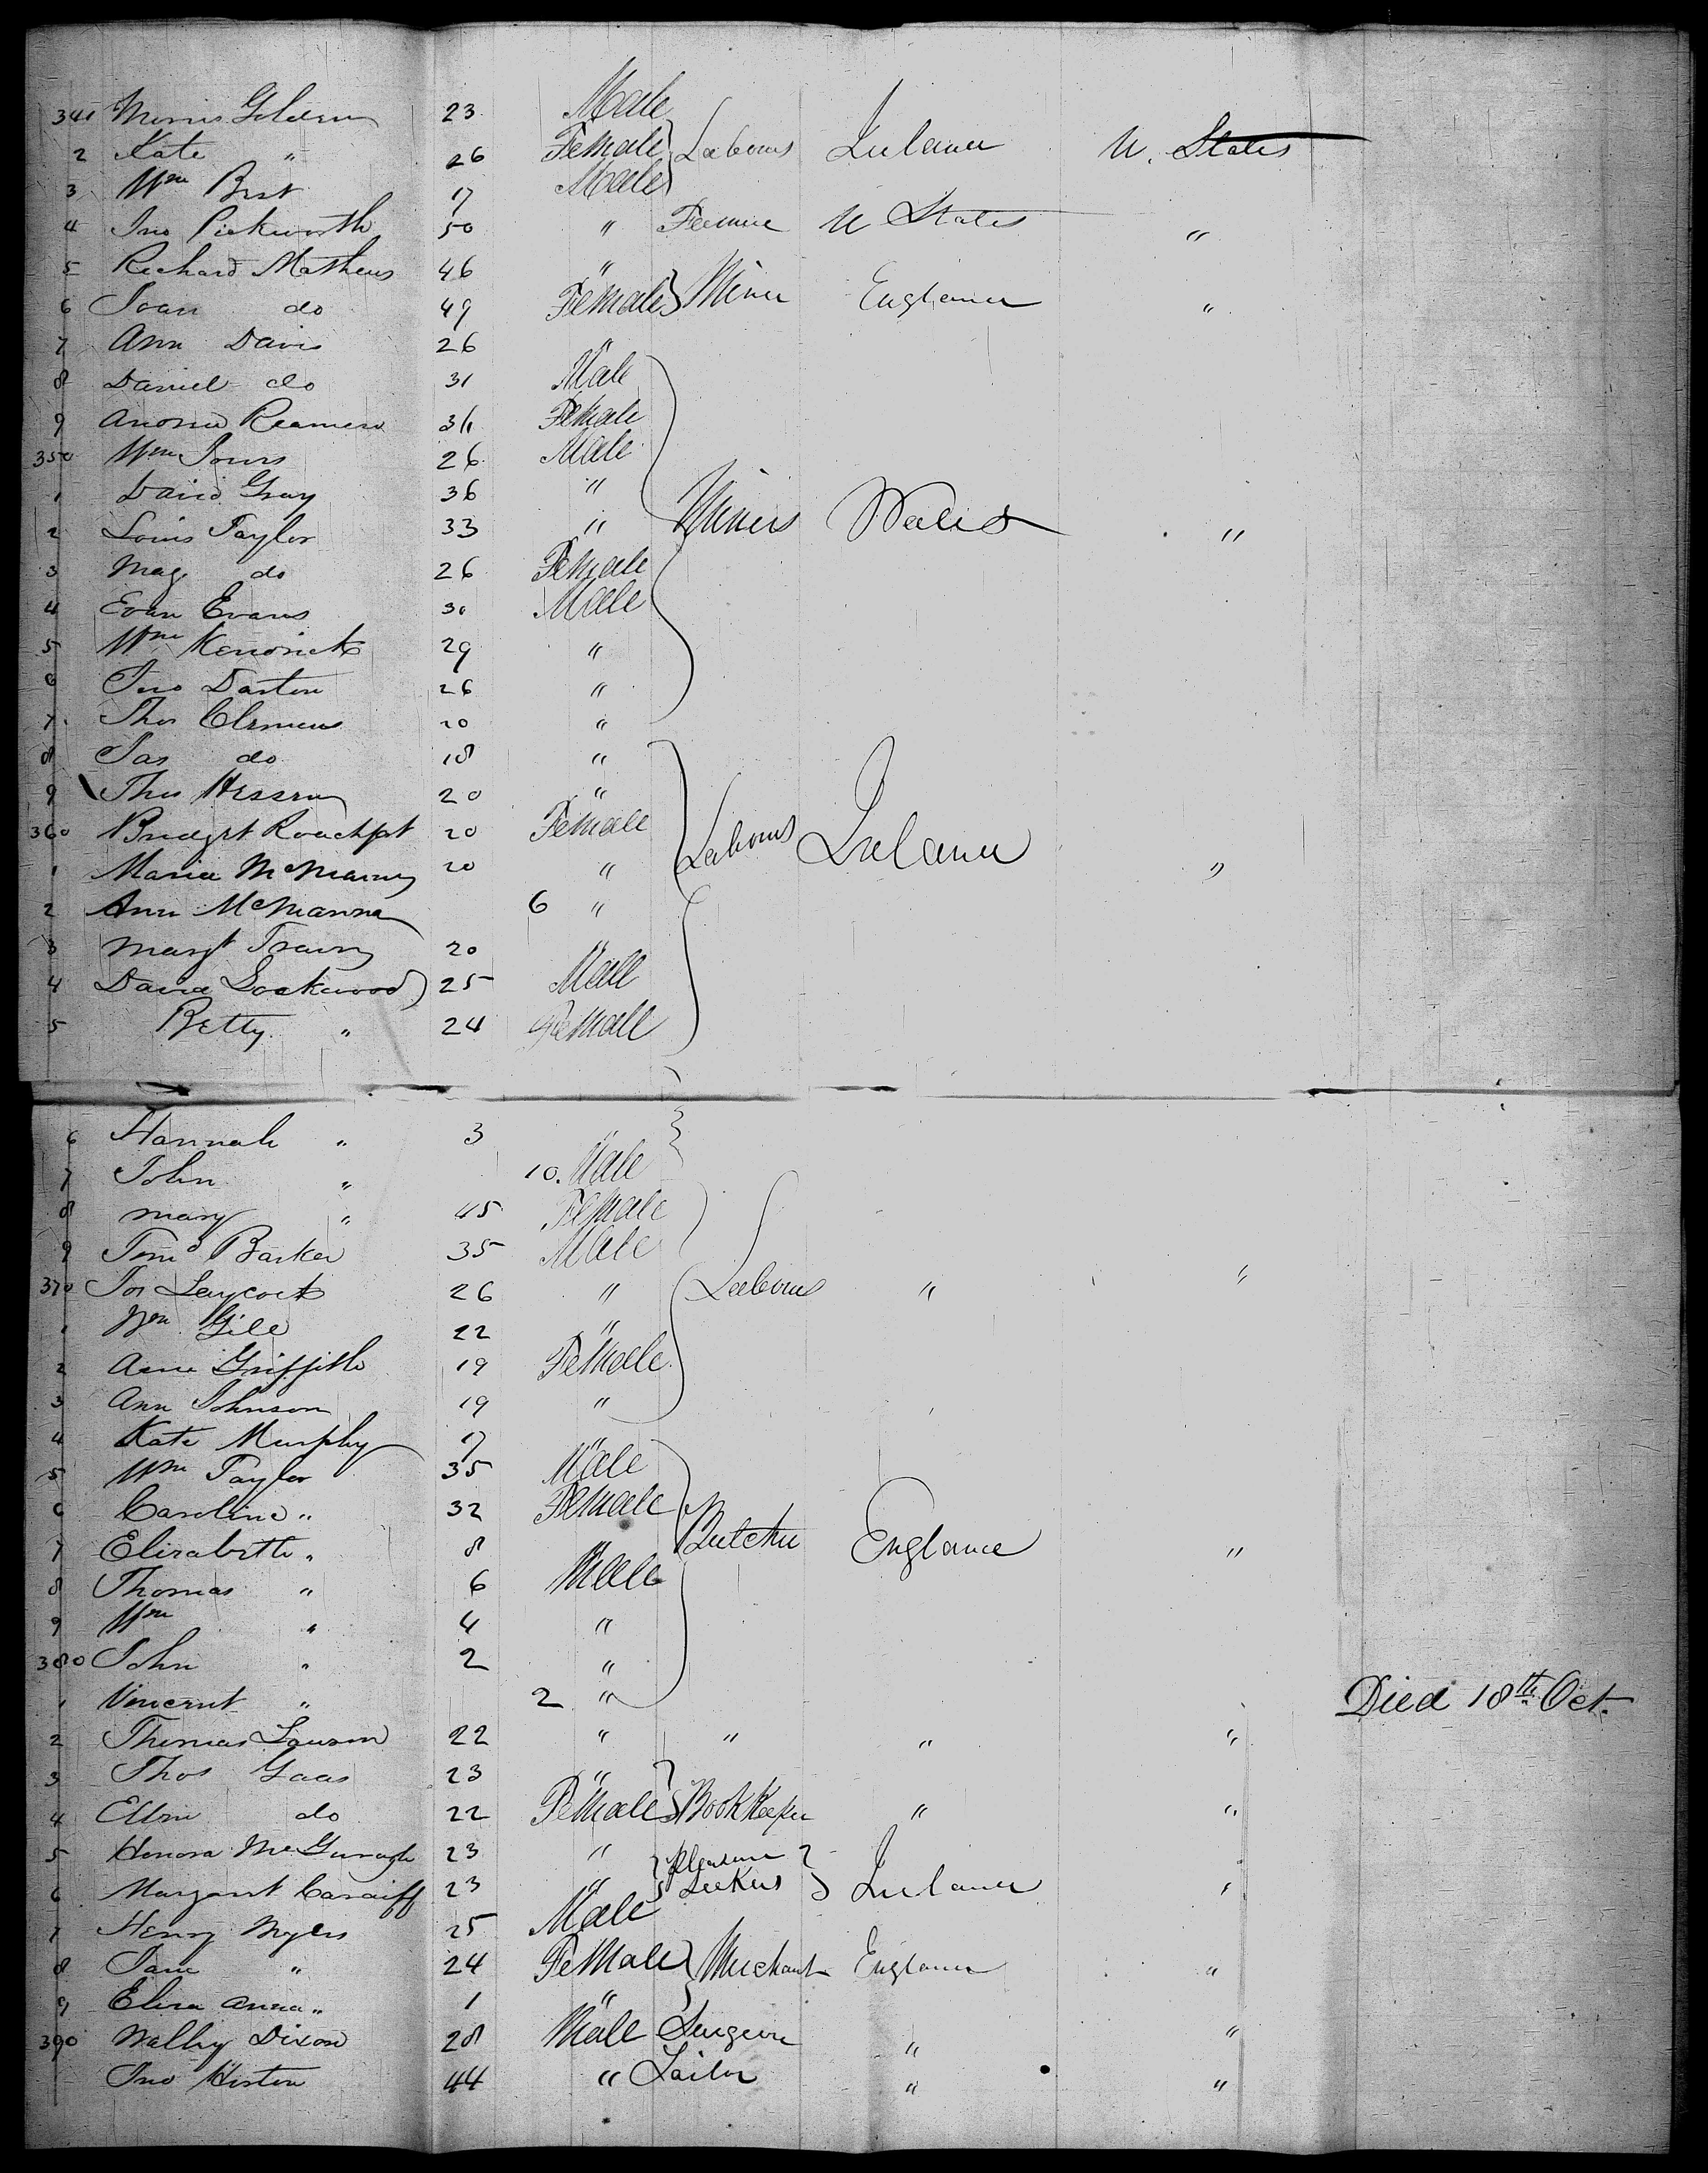 341 Morris Golden 23 Male
2 Kate " 26 Female Labours Ireland U. States
3 Wm Best 17 Male
4 Jno Pickworth 50 " Farmer U States "
5 Richard Mathews 46 "
6 Joan do 49 Female Miner England "
7 Ann Davis 26 "
8 Daniel do 31 Male
9 36 Female
350 Wm Jones 26 Male
1 David Gray 36 "
2 Louis Taylor 33 " Miners Wales "
3 Mag. do 26 Female
4 Evan Evans 30 Male
5 Wm Kendrick 29 "
6 Jno Darton 26 "
7 Thos Clemens 20 "
8 Jas do 18 "
9 Thos 20 "
360 Bridget 20 Female Labours Ireland "
1 Maria 20 "
2 Ann McManna 6 "
3 Margt 20 "
4 David Lockwood 25 Male
5 Betty " 24 Female
6 Hannah " 3 "
7 John " 10. Male
8 Mary " 45 Female
9 Barker 35 Male
370 Jos Laycock 26 " Labours " "
1 Wm Gill 22 "
2 Griffith 19 Female
3 Ann Johnson 19 "
4 Kate Murphy 17 "
5 Wm Taylor 35 Male
6 Caroline " 32 Female
7 Elizabeth " 8 " Butcher England "
8 Thomas " 6 Male
9 Wm " 4 "
380 John " 2 "
1 Vincent " 2 " Died 18th Oct.
2 Thomas Lawson 22 " " " "
3 Thos Gaas 23 "
4 Ellen do 22 Female BookKeeper " "
5 Honora 23 " Pleasure
6 Margaret Cardiff 23 " Seekers Ireland "
7 Henry Myles 25 Male
8 Jane " 24 Female Merchant England "
9 Eliza Anna " 1 "
390 Dixon 28 Male Surgeon " "
Jno 44 " Tailor " "